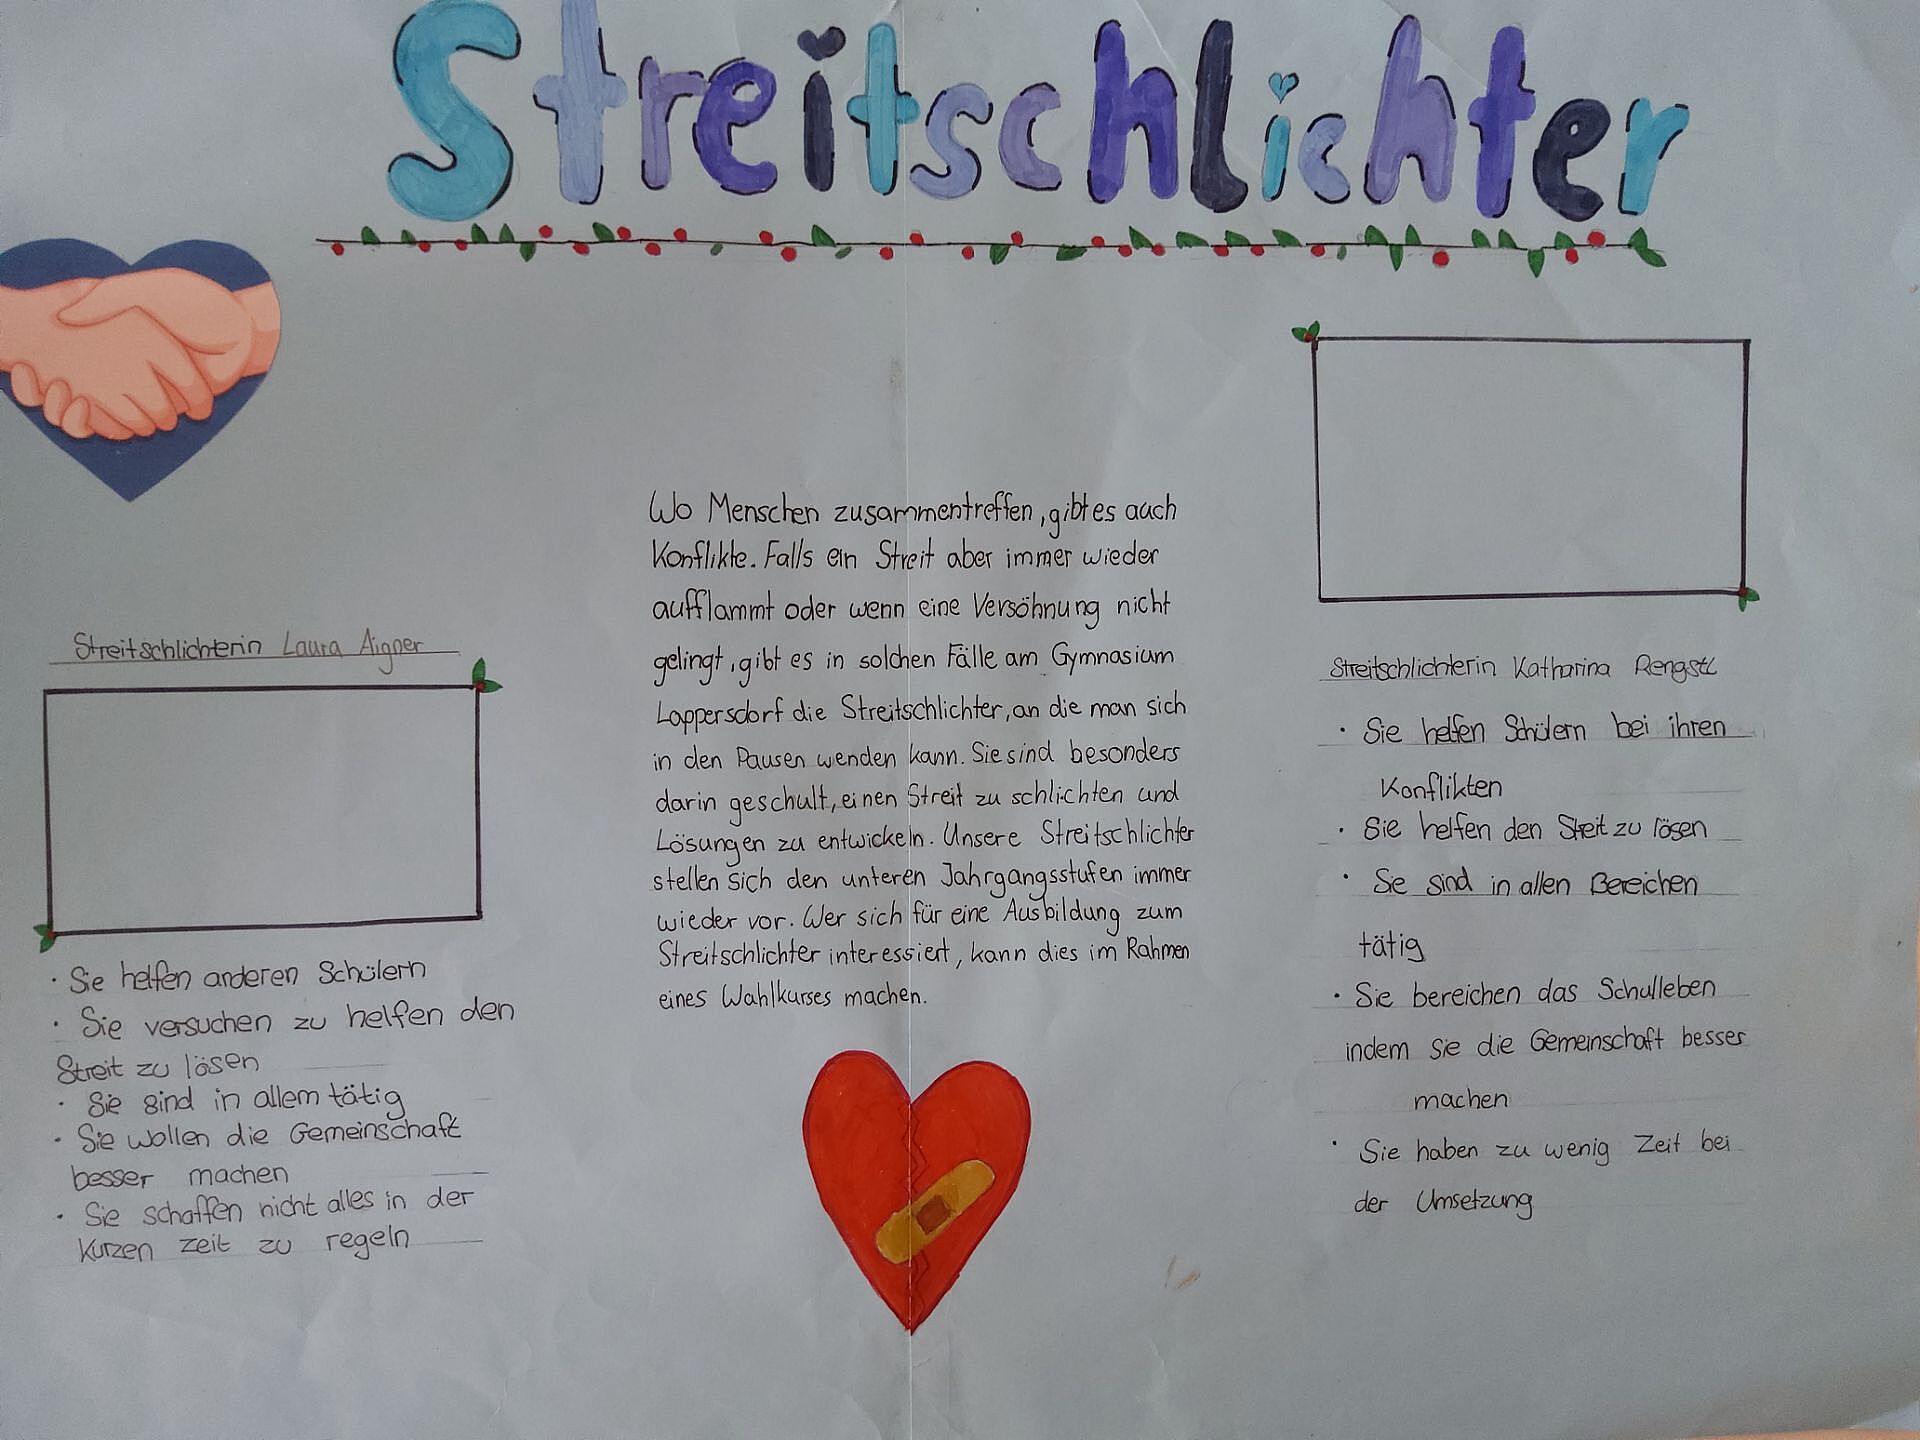 Streitschlichter
Streitschlichterin Laura Aigner
· Sie helfen anderen Schülern
· Sie versuchen zu helfen den
Streit zu lösen
· Sie sind in allem tätig
· Sie wollen die Gemeinschaft
besser machen
· Sie schaffen nicht alles in der
kurzen Zeit zu regeln
Wo Menschen zusammentreffen, gibt es auch
Konflikte. Falls ein Streit aber immer wieder
aufflammt oder wenn eine Versöhnung nicht
gelingt, gibt es in solchen Fälle am Gymnasium
Lappersdorf die Streitschlichter, an die man sich
in den Pausen wenden kann. Sie sind besonders
darin geschult, einen Streit zu schlichten und
Lösungen zu entwickeln. Unsere Streitschlichter
stellen sich den unteren Jahrgangsstufen immer
wieder vor. Wer sich für eine Ausbildung zum
Streitschlichter interessiert, kann dies im Rahmen
eines Wahlkurses machen.
Streitschlichterin Katharina Rengstl
· Sie helfen Schülern bei ihren
Konflikten
· Sie helfen den Streit zu lösen
· Sie sind in allen Bereichen
tätig
· Sie bereichen das Schulleben
indem Sie die Gemeinschaft besser
machen
· Sie haben zu wenig Zeit bei
der Umsetzung